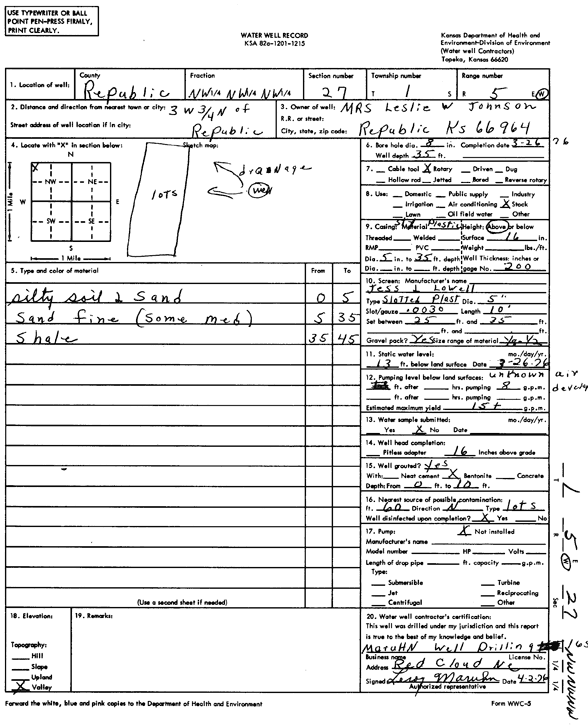 USE TYPEWRITER OR BALL
POINT PEN-PRESS FIRMLY,
PRINT CLEARLY.
WATER WELL RECORD
KSA 82a-1201-1215
Kansas Department of Health and
Environment-Division of Environment
(Water well Contractors)
Topeka, Kansas 66620
1. Location of well: County Republic Fraction NW¼ NW¼ NW¼ Section number 27 Township number T 1 S Range number R 5 E W
2. Distance and direction from nearest town or city: 3 W 3/4 N of
Street address of well location if in city: Republic
3. Owner of well: MRS Leslie W Johnson
R.R. or street:
City, state, zip code: Republic Ks 66964
4. Locate with "X" in section below:
Sketch map:
N
X
NW NE
W E
SW SE
S
1 Mile
1 Mile
lots
drainage
well
5. Type and color of material From To
silty soil & Sand 0 5
Sand fine (some med) 5 35
Shale 35 45
(Use a second sheet if needed)
6. Bore hole dia. 8 in. Completion date 3-26 76
Well depth 35 ft.
7. Cable tool X Rotary Driven Dug
Hollow rod Jetted Bored Reverse rotary
8. Use: Domestic Public supply Industry
Irrigation Air conditioning X Stock
Lawn Oil field water Other
9. Casing: Material Plastic Height: Above or below
Threaded Welded Surface 16 in.
RMP PVC Weight lbs./ft.
Dia. 5 in. to 35 ft. depth Wall Thickness: inches or
Dia. in. to ft. depth gage No. 200
10. Screen: Manufacturer's name
Jess & Lowell
Type Slotted Plast Dia. 5"
Slot/gauze .0030 Length 10'
Set between 25 ft. and 35 ft.
ft. and ft.
Gravel pack? Yes Size range of material
11. Static water level: mo./day/yr.
13 ft. below land surface Date 3-26-76
12. Pumping level below land surfaces: unknown air
ft. after hrs. pumping 8 g.p.m.
ft. after hrs. pumping g.p.m.
Estimated maximum yield 15+ g.p.m.
13. Water sample submitted: mo./day/yr.
Yes X No Date
14. Well head completion:
Pitless adapter 16 Inches above grade
15. Well grouted? yes
With: Neat cement X Bentonite Concrete
Depth: From 0 ft. to 10 ft.
16. Nearest source of possible contamination:
ft. 60 Direction N Type lots
Well disinfected upon completion? X Yes No
17. Pump: X Not installed
Manufacturer's name
Model number HP Volts
Length of drop pipe ft. capacity g.p.m.
Type:
Submersible Turbine
Jet Reciprocating
Centrifugal Other
18. Elevation:
Topography:
Hill
Slope
Upland
X Valley
19. Remarks:
20. Water well contractor's certification:
This well was drilled under my jurisdiction and this report
is true to the best of my knowledge and belief.
MaruHN Well Drilling 165
Business name License No.
Address Red Cloud Ne
Signed Date 4-2-76
Authorized representative
Forward the white, blue and pink copies to the Department of Health and Environment
Form WWC-5